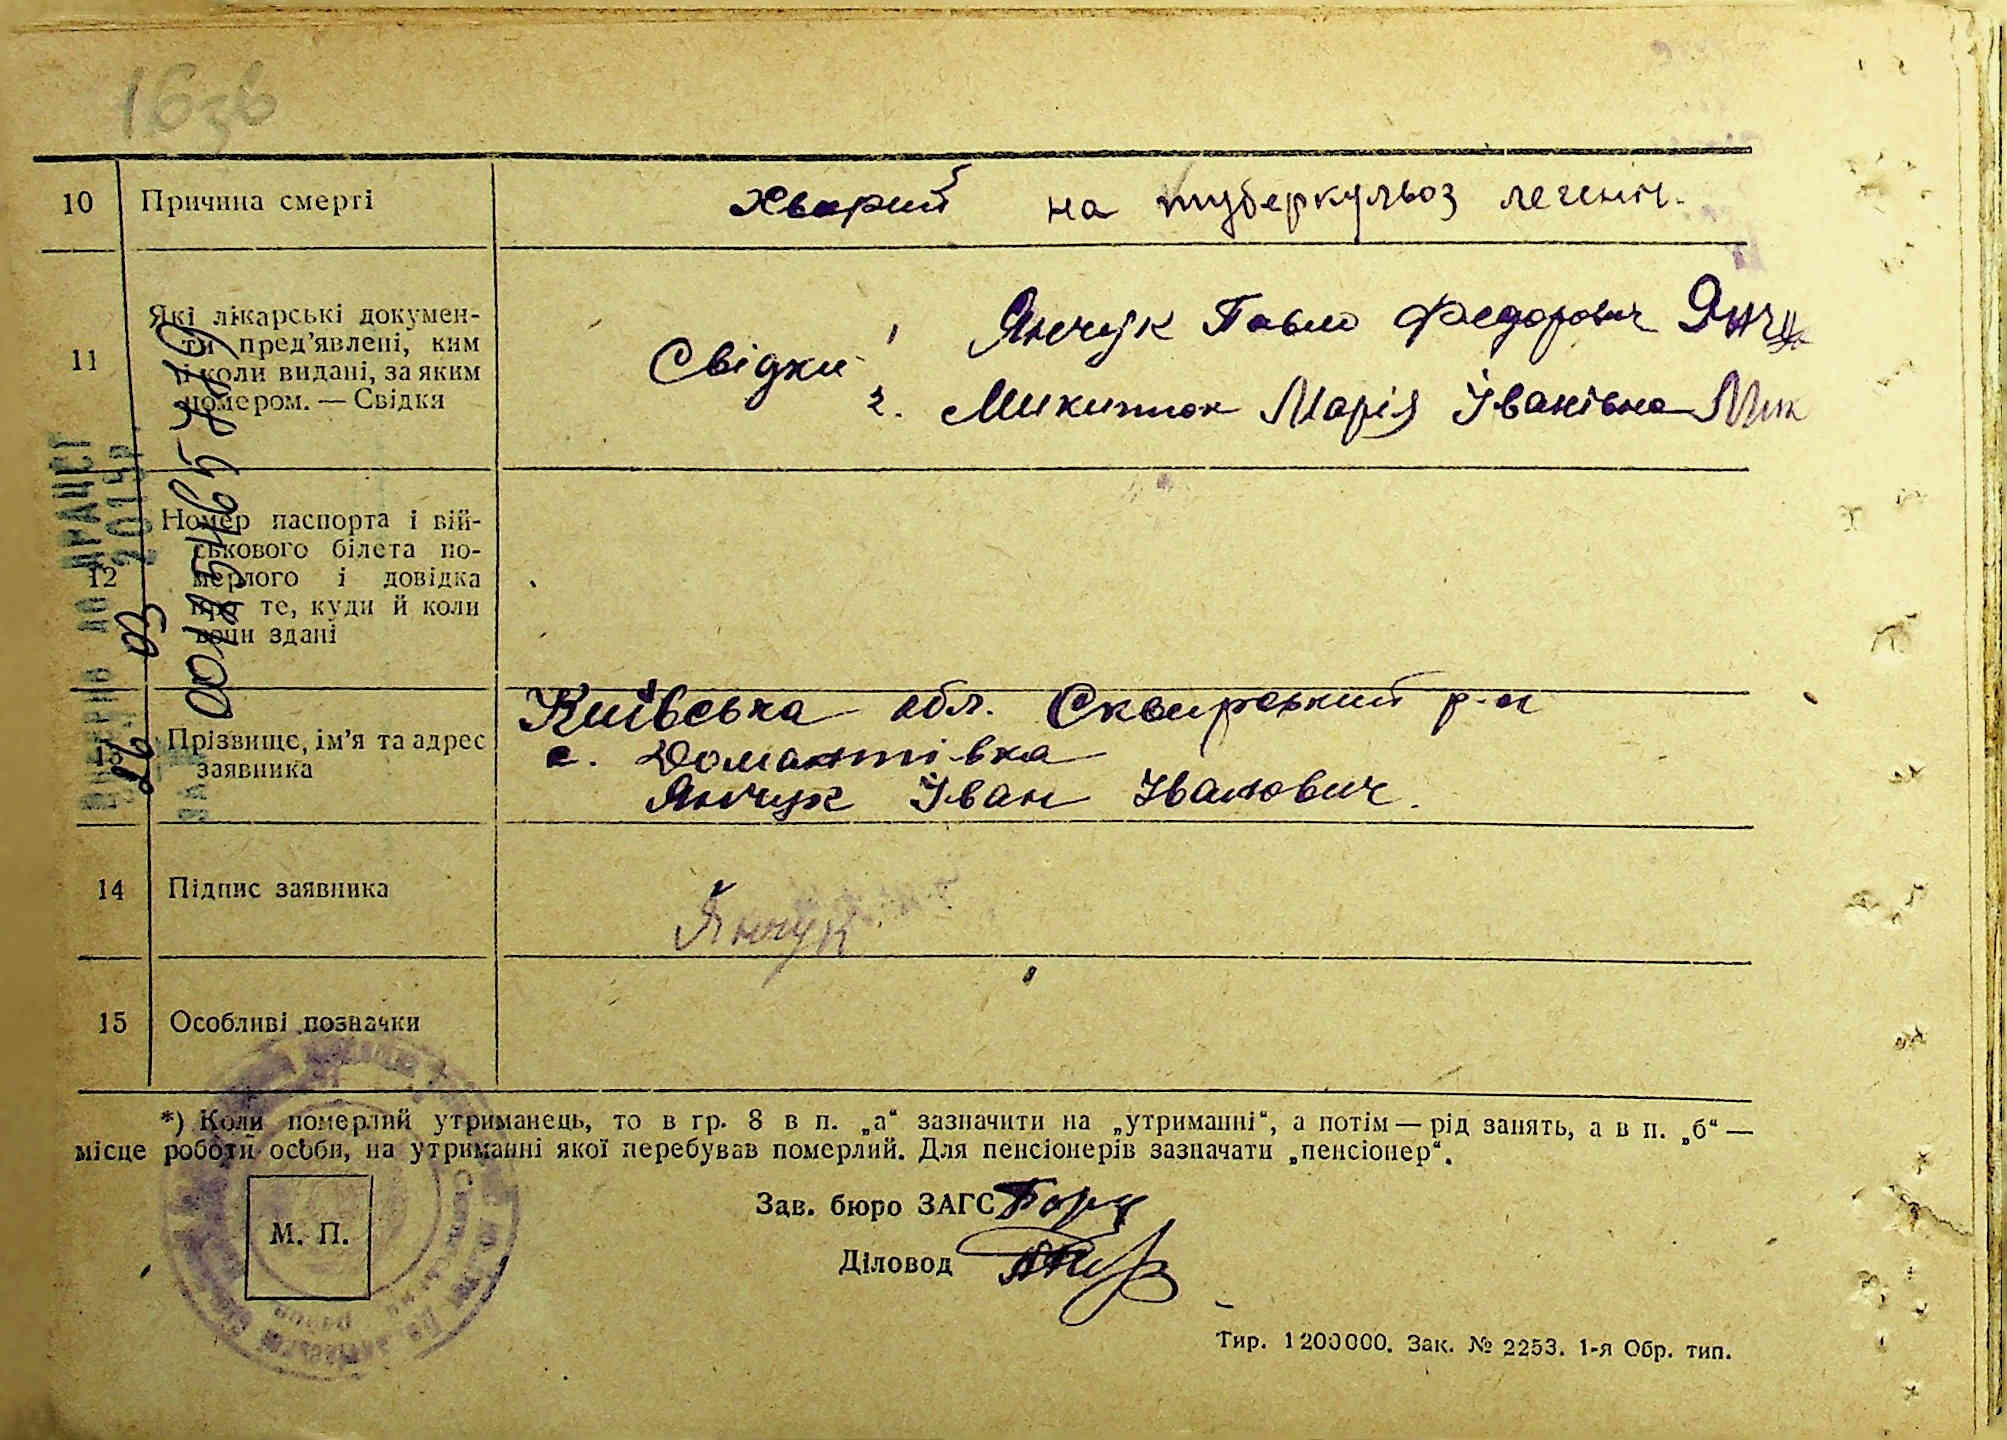 16зв
10 Причина смерті
Хворий на туберкульоз легенів.
11 Які лікарські докумен-
ти пред’явлені, ким
й коли видані, за яким
номером. — Свідки
Свідки 1 Янчук Павло Федорович Янчук
2. Микитюк Марія Іванівна Мик
12 Номер паспорта і вій-
ськового білета по-
мерлого і довідка
про те, куди й коли
вони здані
13 Прізвище, ім’я та адрес
заявника
Київська обл. Сквирський р-н
с. Домантівка
Янчук Іван Іванович.
14 Підпис заявника
Янчук
15 Особливі позначки
*) Коли померлий утриманець, то в гр. 8 в п. „а“ зазначити на „утриманні“, а потім — рід занять, а в п. „б“ —
місце роботи особи, на утриманні якої перебував померлий. Для пенсіонерів зазначати „пенсіонер“.
М. П.
Зав. бюро ЗАГС
Діловод
Тир. 1200000. Зак. № 2253. 1-я Обр. тип.
ДРАЦСГ
2015р.
26 03